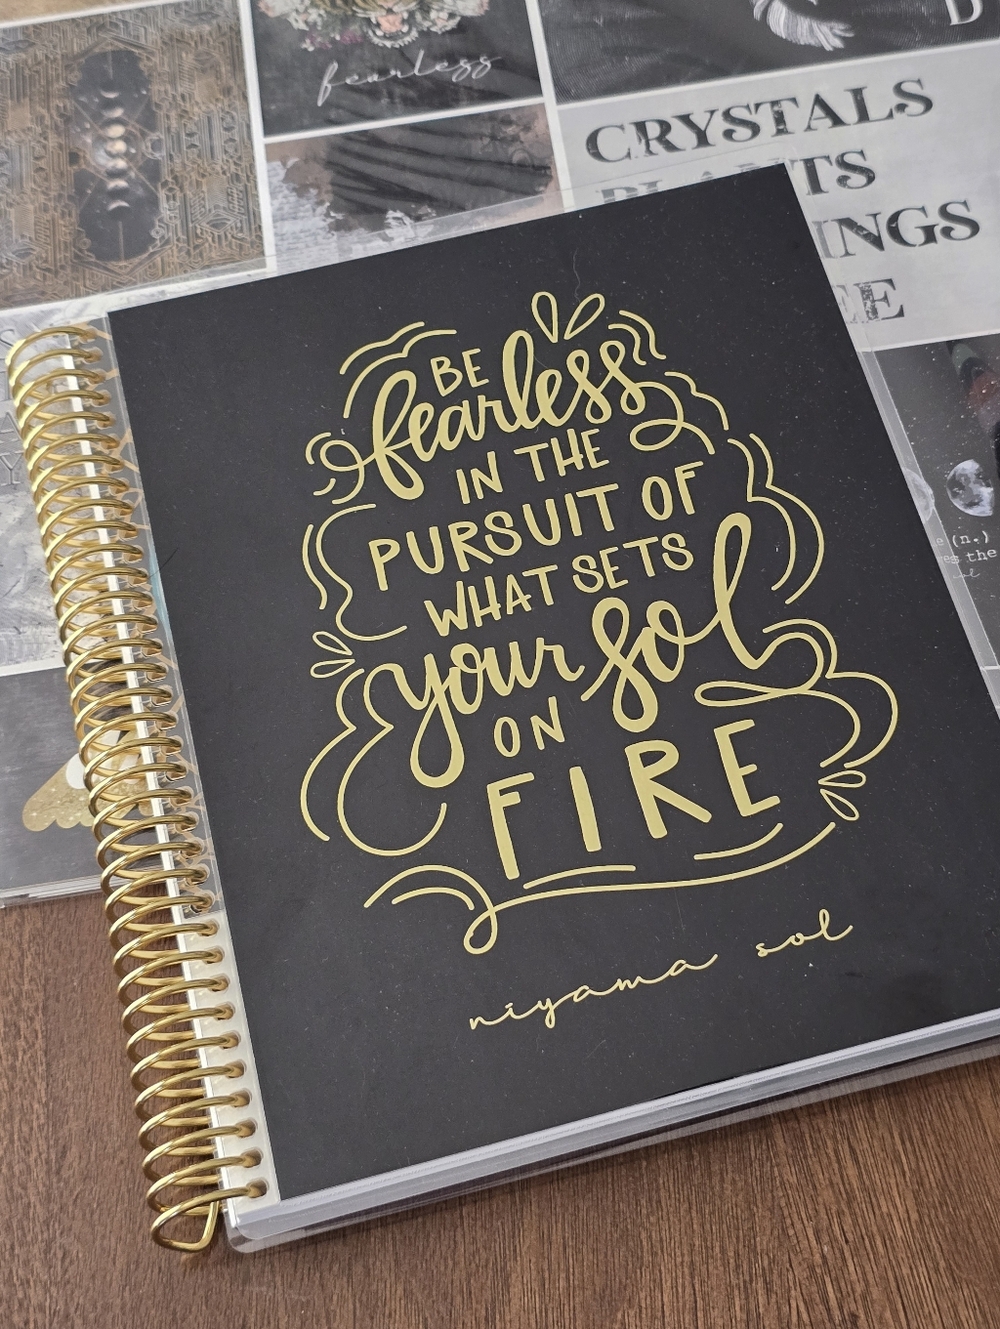 fearless
CRYSTALS
BE
fearless
IN THE
PURSUIT OF
WHAT SETS
your sol
ON
FIRE
niyama sol
(n.)
the